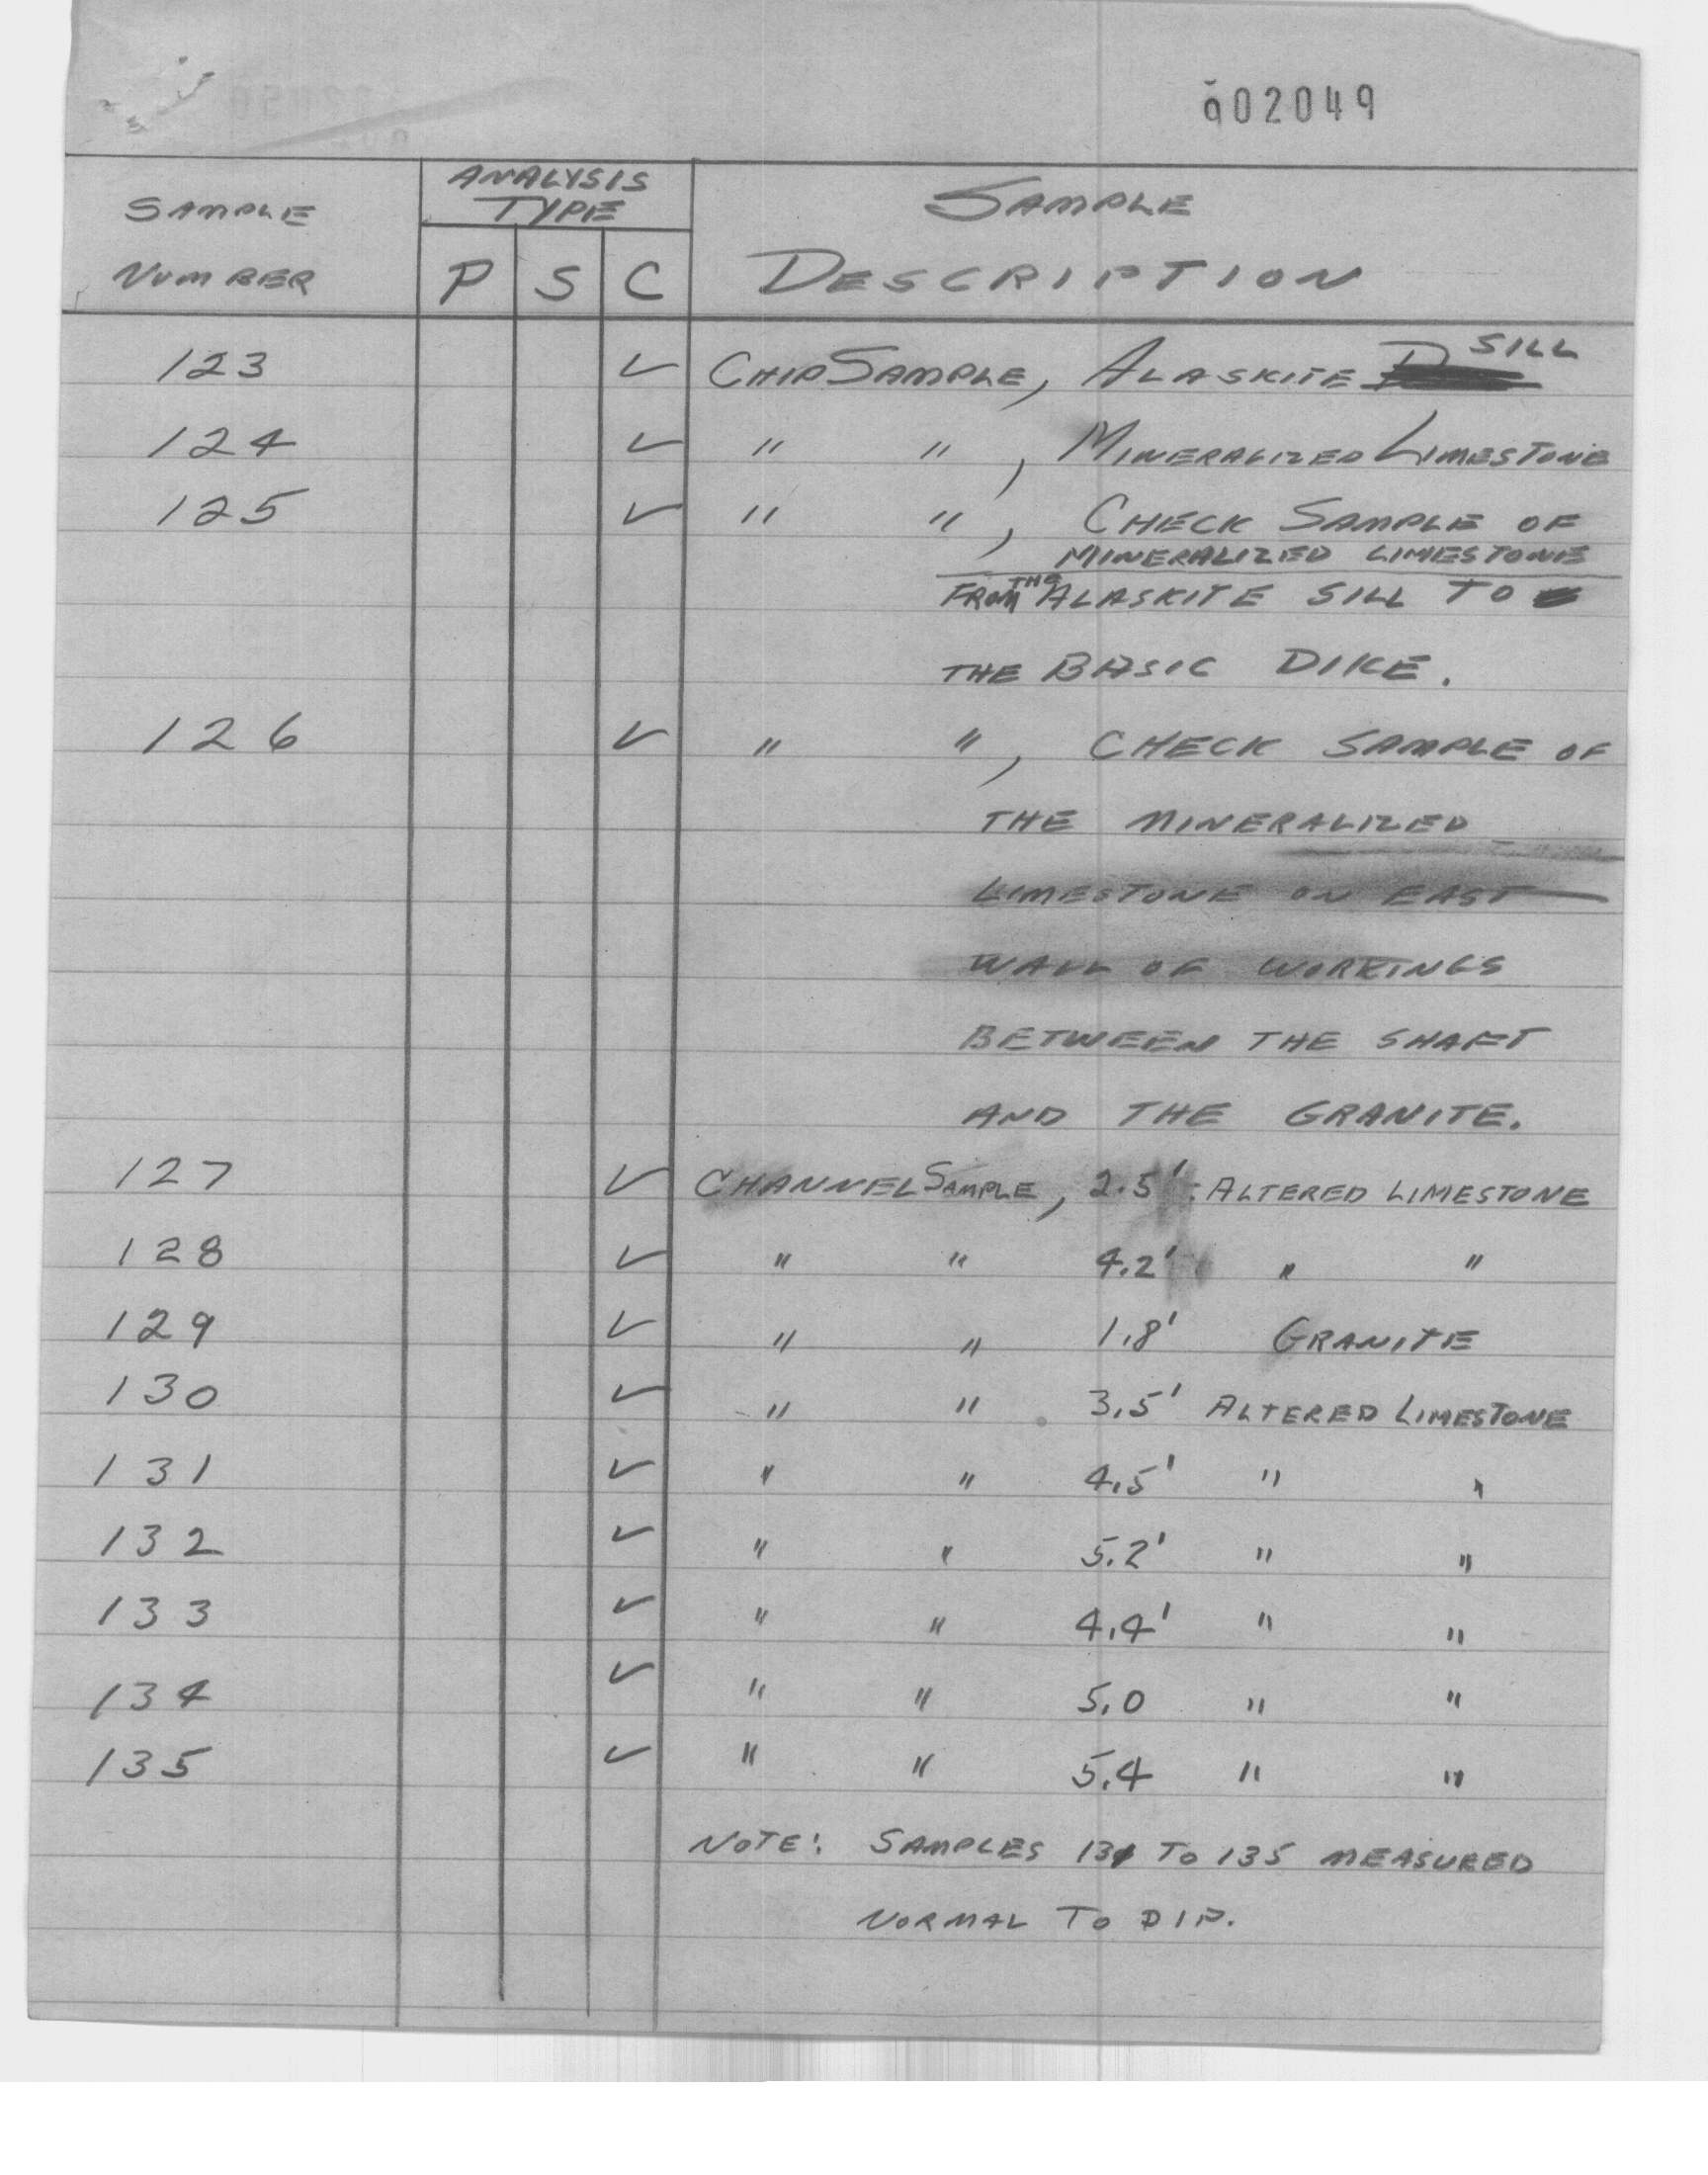 002049
SAMPLE NUMBER | ANALYSIS TYPE | SAMPLE DESCRIPTION
P | S | C
123 ✓ CHIP SAMPLE, ALASKITE SILL
124 ✓ " " , MINERALIZED LIMESTONE
125 ✓ " " , CHECK SAMPLE OF
MINERALIZED LIMESTONE
FROM THE ALASKITE SILL TO
THE BASIC DIKE.
126 ✓ " " , CHECK SAMPLE OF
THE MINERALIZED
LIMESTONE ON EAST
WALL OF WORKINGS
BETWEEN THE SHAFT
AND THE GRANITE.
127 ✓ CHANNEL SAMPLE, 2.5' ALTERED LIMESTONE
128 ✓ " " 4.2' " "
129 ✓ " " 1.8' GRANITE
130 ✓ " " 3.5' ALTERED LIMESTONE
131 ✓ " " 4.5' " "
132 ✓ " " 5.2' " "
133 ✓ " " 4.4' " "
134 ✓ " " 5.0 " "
135 ✓ " " 5.4 " "
NOTE: SAMPLES 131 TO 135 MEASURED
NORMAL TO DIP.